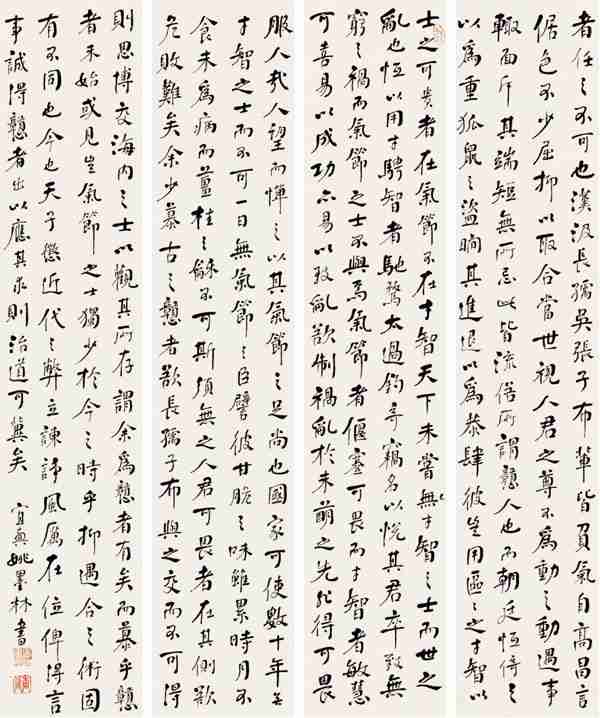 者任之不可也漢汲長孺吳張子布輩皆負氣自高昌言
倨色不少屈抑以取合當世視人君之尊不為動之動遇事
輒面斥其端短無所忌此皆流俗所謂戇人也而朝廷恒倚之
以為重狐鼠之盜晌其進退以為恭肆彼豈用區區之才智以
士之可貴者在氣節不在才智天下未嘗無才智之士而世之
亂也恒以用才騁智者馳騖太過釣奇竊名以悅其君卒致無
窮之禍而氣節之士不與焉氣節者偃蹇可畏而才智者敏慧
可喜易以成功亦易以致亂欲制禍亂於未萌之先非得可畏
服人哉人望而憚之以其氣節之足尚也國家可使數十年無
才智之士而不可一日無氣節之臣譬彼甘脆之味雖累時月不
食未為病而薑桂之龢不可斯須無之人君可畏者在其側欲
危敗難矣余少慕古之戇者欲長孺子布與之交而不可得
則思博交海內之士以觀其所存謂余為戇者有矣而慕乎戇
者未始或見豈氣節之士獨少於今之時乎抑遇合之術固
有不同也今也天子懲近代之弊立諫諍風厲在位俾得言
事誠得戇者出以應其求則治道可冀矣 宜興姚墨林書